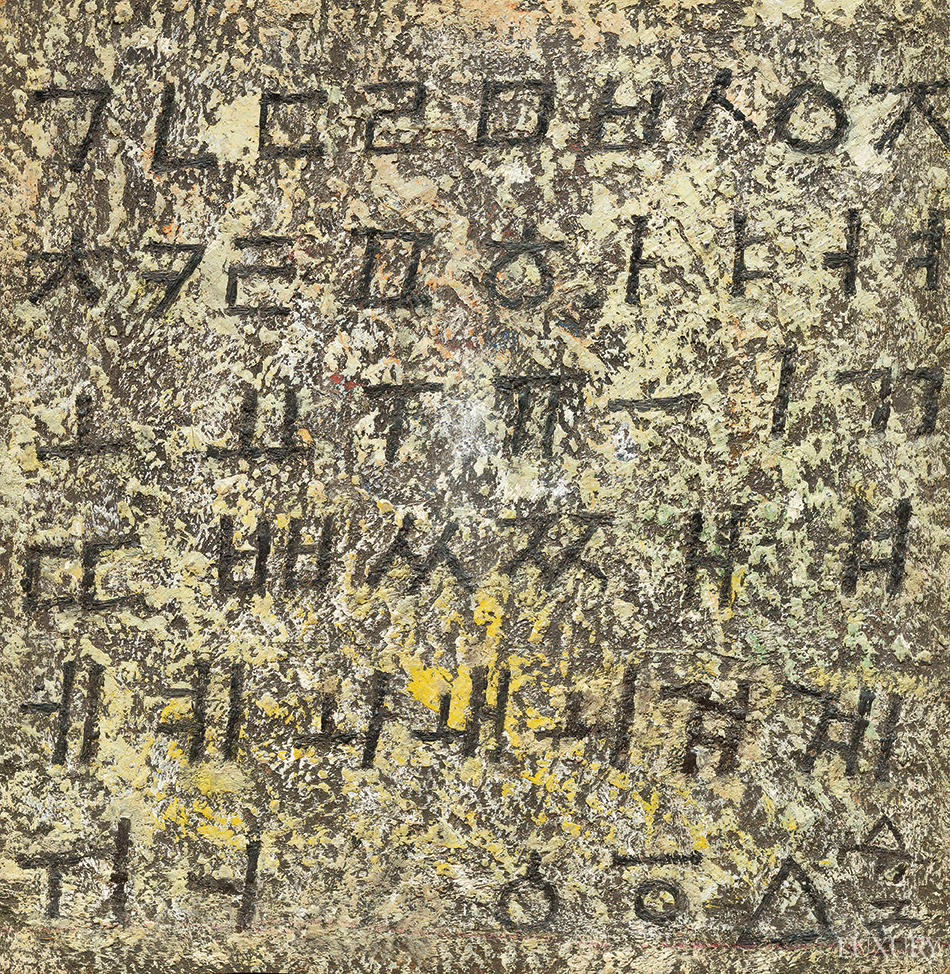 ㄱ ㄴ ㄷ ㄹ ㅁ ㅂ ㅅ ㅇ ㅈ
ㅊ ㅋ ㅌ ㅍ ㅎ ㅏ ㅑ ㅓ ㅕ
ㅗ ㅛ ㅜ ㅠ ㅡ ㅣ ㄲ
ㄸ ㅃ ㅆ ㅉ ㅐ ㅒ
ㅔ ㅖ ㅘ ㅙ ㅚ ㅝ ㅞ
ㅟ ㅢ ㆁ ㆆ ㅿ
LUXURY